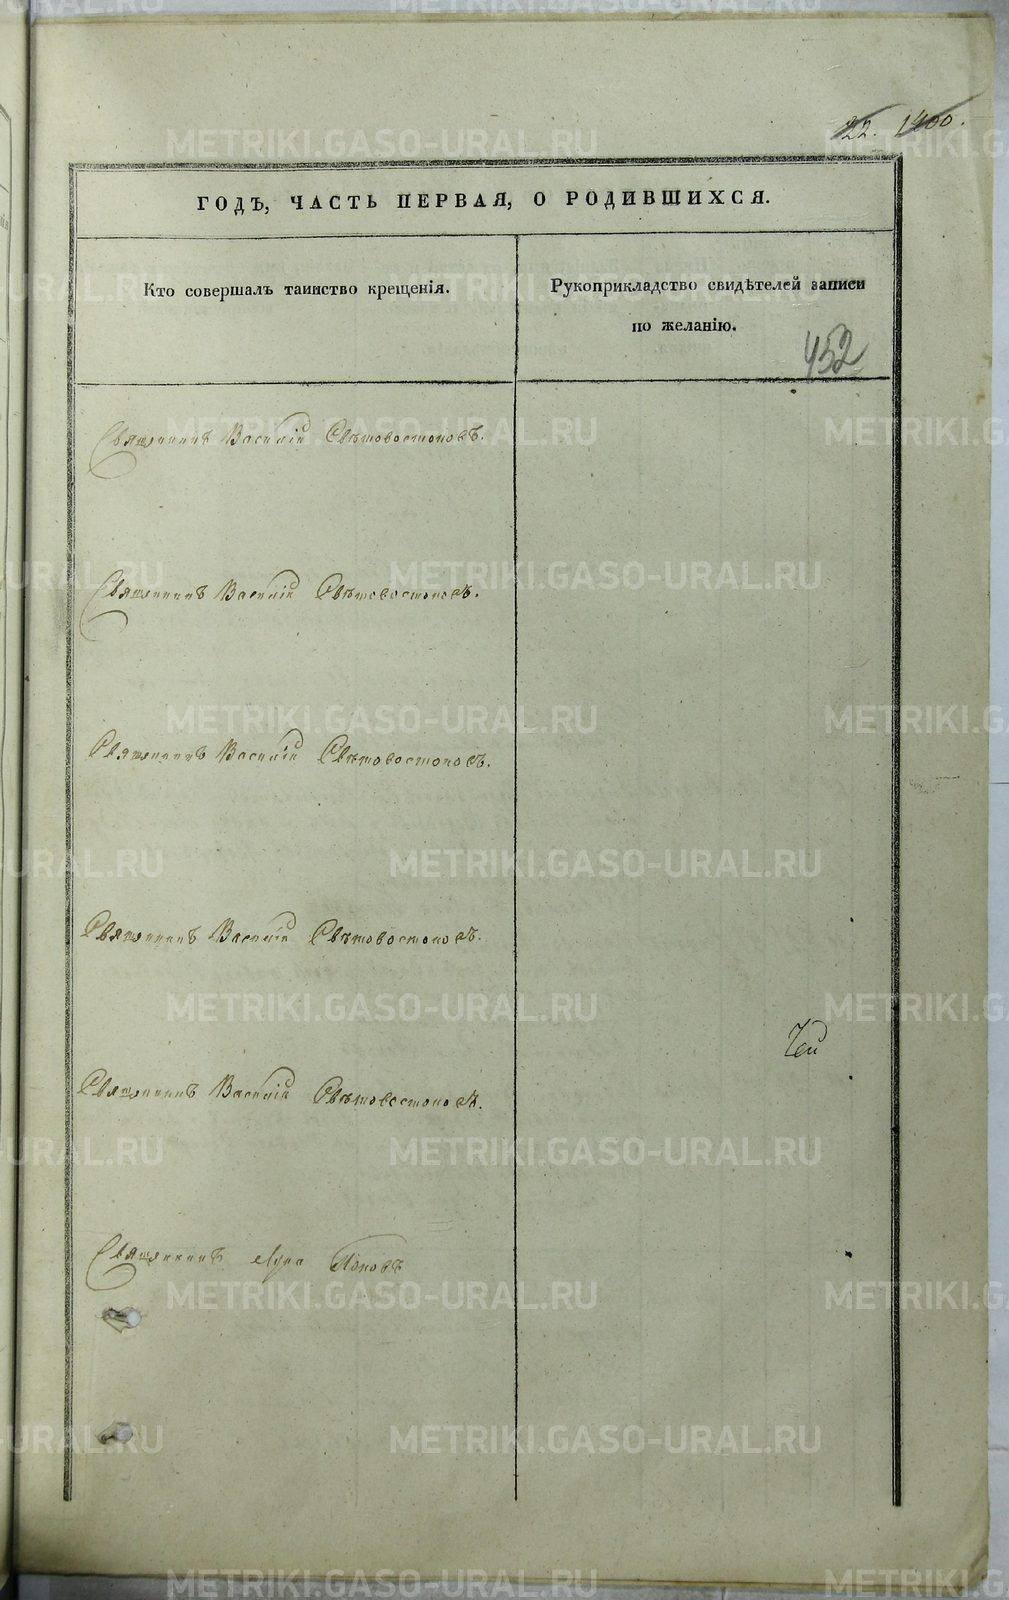 22. 1400.
ГОДЪ, ЧАСТЬ ПЕРВАЯ, О РОДИВШИХСЯ.
Кто совершалъ таинство крещенія.
Рукоприкладство свидѣтелей записи
по желанію.
452
Священникъ Василій Свѣтовостоковъ.
Священникъ Василій Свѣтовостоковъ.
Священникъ Василій Свѣтовостоковъ.
Священникъ Василій Свѣтовостоковъ.
Священникъ Василій Свѣтовостоковъ.
Священникъ Лука Поповъ
METRIKI.GASO-URAL.RU